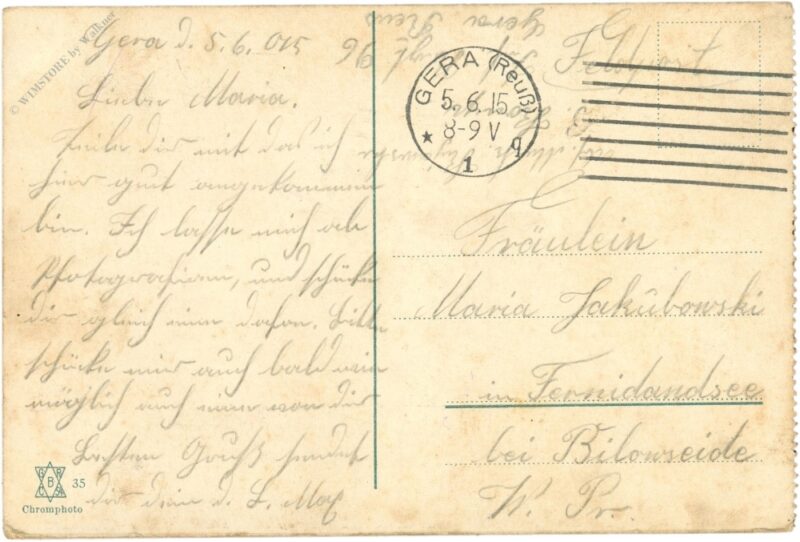 Gera d. 5.6.015
Liebe Maria.
Teile dir mit das ich
hier gut angekommen
bin. Ich lasse mich ab
Photografieren, und schücke
dir gleich einn dafon. Bitte
schücke mir auch bald wen
möglich auch einn von dir
Besten Gruß sendet
dir dein d. L. Max
Gera Reus
Feldpost
GERA (Reuß)
5.6.15
8-9 V
★ 1 q
Fräulein
Maria Jakubowski
in Fernidandsee
bei Bilowseide
W. Pr.
B
35
Chromphoto
© WIMSTORE by Walkner